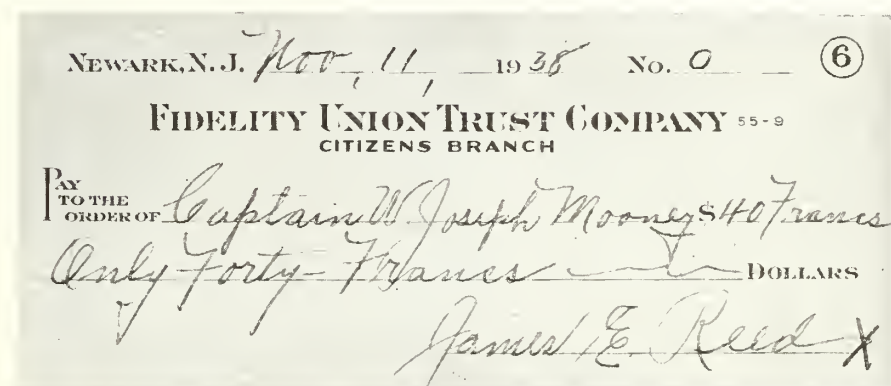 NEWARK, N. J. Nov, 11, 1938 No. 0 6
FIDELITY UNION TRUST COMPANY 55-9
CITIZENS BRANCH
PAY TO THE ORDER OF Captain W Joseph Mooney $40 Francs
Only Forty-Francs DOLLARS
James E Reed X